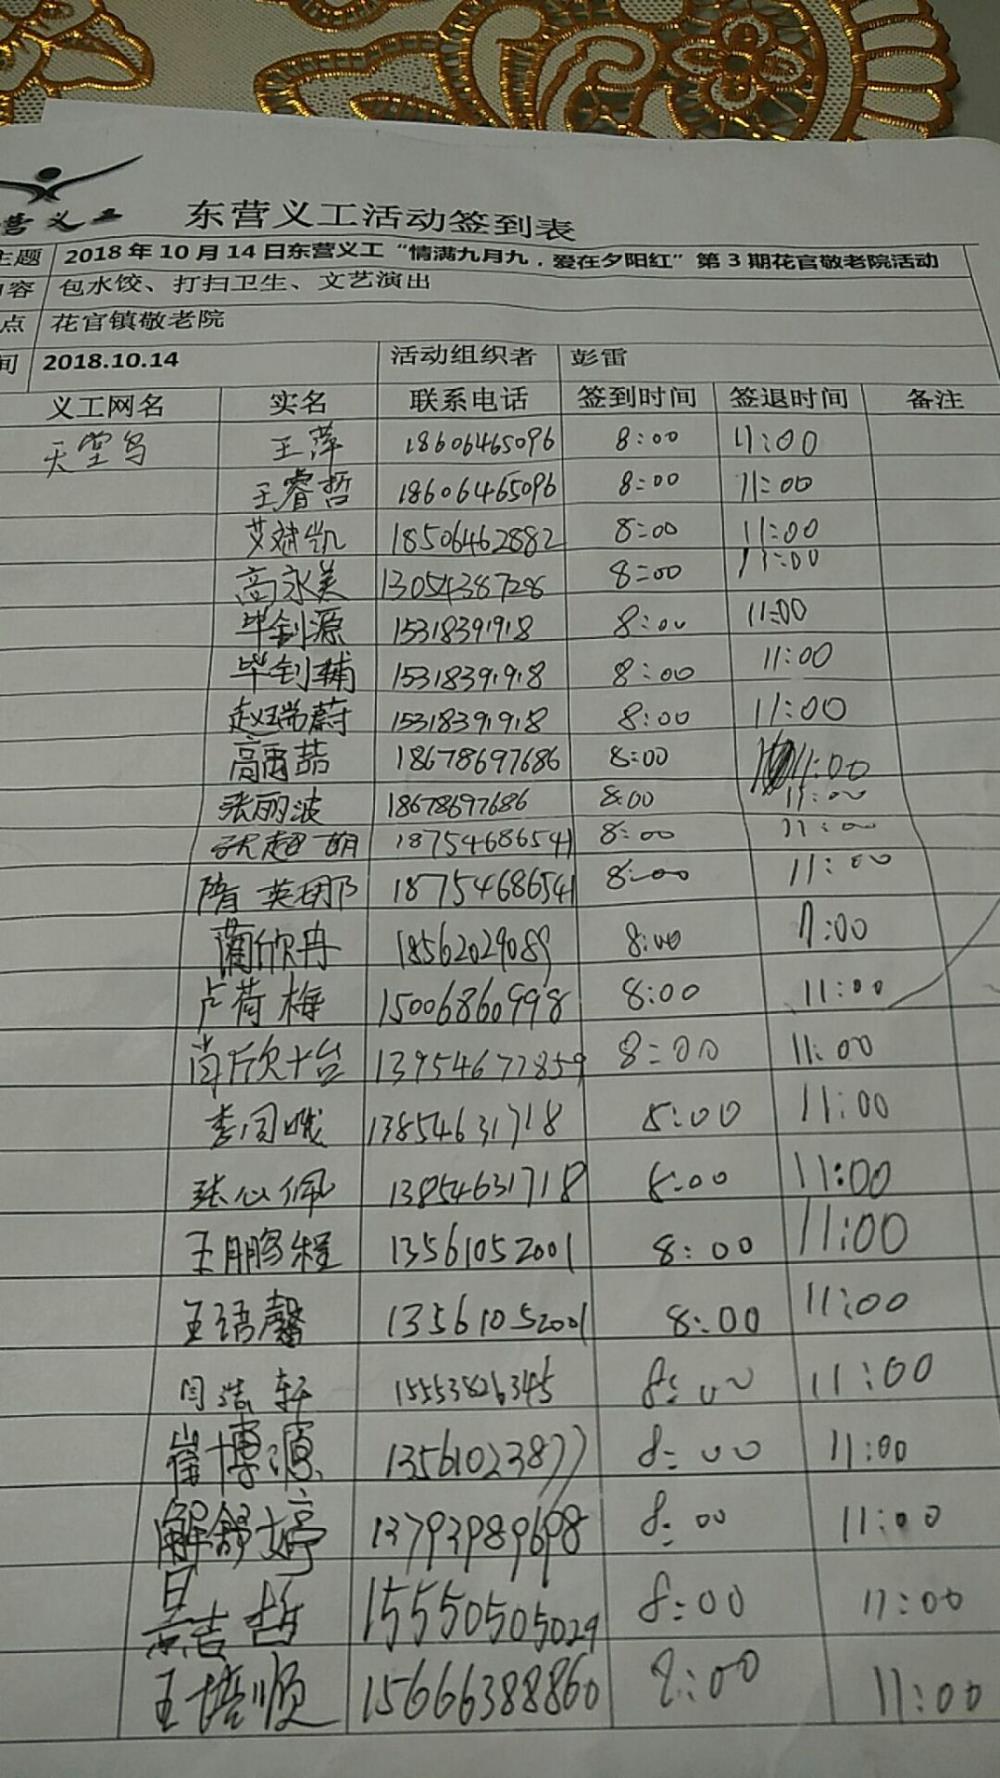 营义工
东营义工活动签到表
主题 2018年10月14日东营义工“情满九月九，爱在夕阳红”第3期花官敬老院活动
内容 包水饺、打扫卫生、文艺演出
点 花官镇敬老院
间 2018.10.14 活动组织者 彭雷
义工网名 实名 联系电话 签到时间 签退时间 备注
天堂鸟 王萍 18606465096 8:00 11:00
王睿哲 18606465096 8:00 11:00
艾斌凯 18506462882 8:00 11:00
高永美 13054387728 8:00 11:00
毕钊源 15318391918 8:00 11:00
毕钊辅 15318391918 8:00 11:00
赵瑞蔚 15318391918 8:00 11:00
高雨喆 18678697686 8:00 11:00
张丽波 18678697686 8:00 11:00
张超 18754686541 8:00 11:00
隋英 18754686541 8:00 11:00
蔺欣冉 18562029089 8:00 11:00
卢荷梅 15006860998 8:00 11:00
尚欣 13954677859 8:00 11:00
李同娥 13854631718 8:00 11:00
张心佩 13854631718 8:00 11:00
王鹏程 13561052001 8:00 11:00
王语馨 13561052001 8:00 11:00
闫浩轩 15553826345 8:00 11:00
崔博源 13561023877 8:00 11:00
解舒婷 13793989698 8:00 11:00
景吉哲 15550505029 8:00 11:00
王培顺 15666388860 8:00 11:00